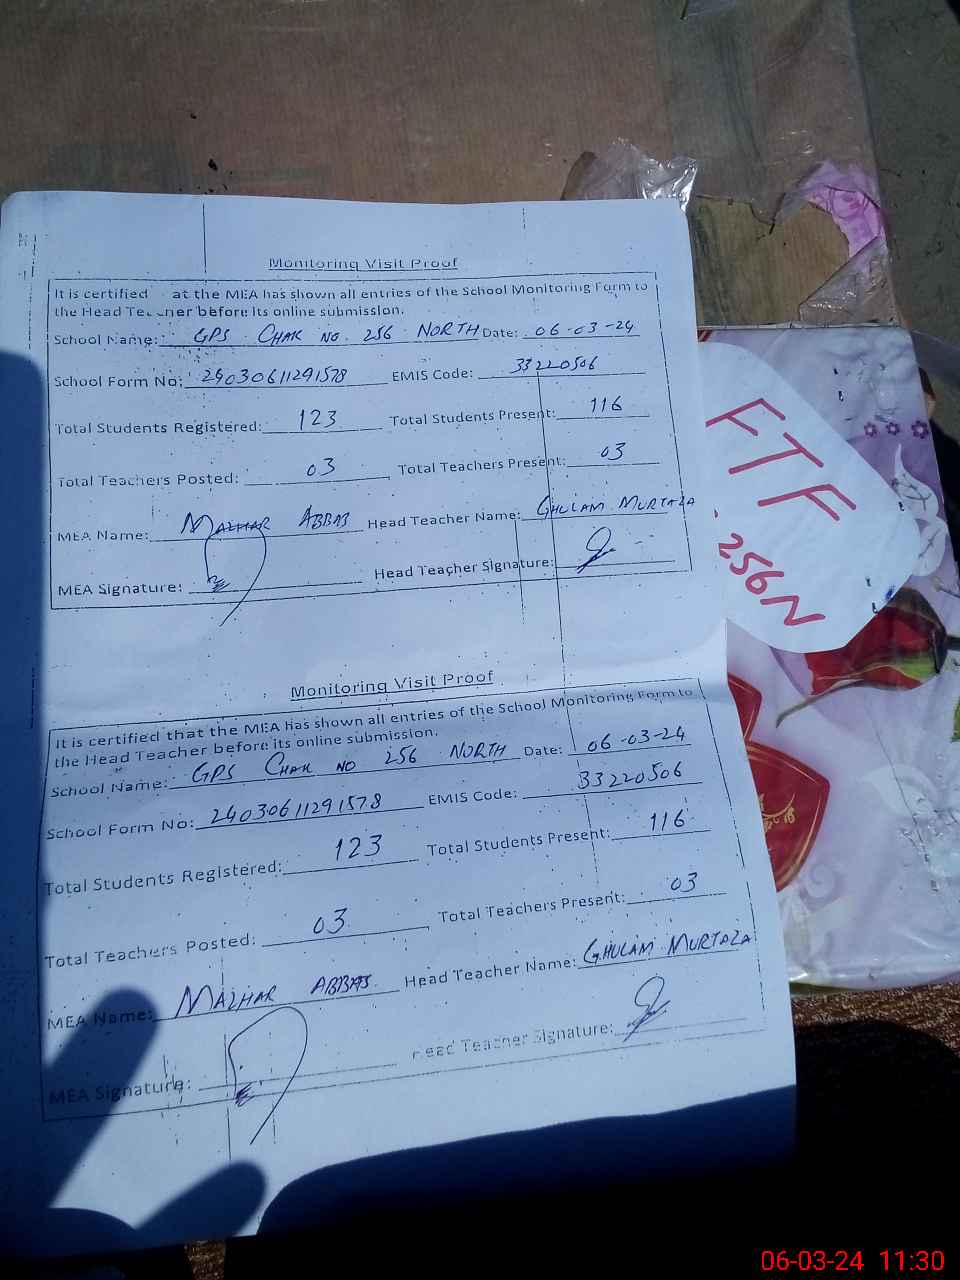 Monitoring Visit Proof
It is certified at the MEA has shown all entries of the School Monitoring Form to
the Head Teacher before its online submission.
School Name: GPS CHAK NO. 256 NORTH Date: 06-03-24
School Form No: 24030611291578 EMIS Code: 33220506
Total Students Registered: 123 Total Students Present: 116
Total Teachers Posted: 03 Total Teachers Present: 03
MEA Name: MAZHAR ABBAS Head Teacher Name: GHULAM MURTAZA
MEA Signature: Head Teacher Signature:
Monitoring Visit Proof
It is certified that the MEA has shown all entries of the School Monitoring Form to
the Head Teacher before its online submission.
School Name: GPS CHAK NO 256 NORTH Date: 06-03-24
School Form No: 24030611291578 EMIS Code: 33220506
Total Students Registered: 123 Total Students Present: 116
Total Teachers Posted: 03 Total Teachers Present: 03
MEA Name: MAZHAR ABBAS Head Teacher Name: GHULAM MURTAZA
MEA Signature: Head Teacher Signature:
FTF
256N
06-03-24 11:30